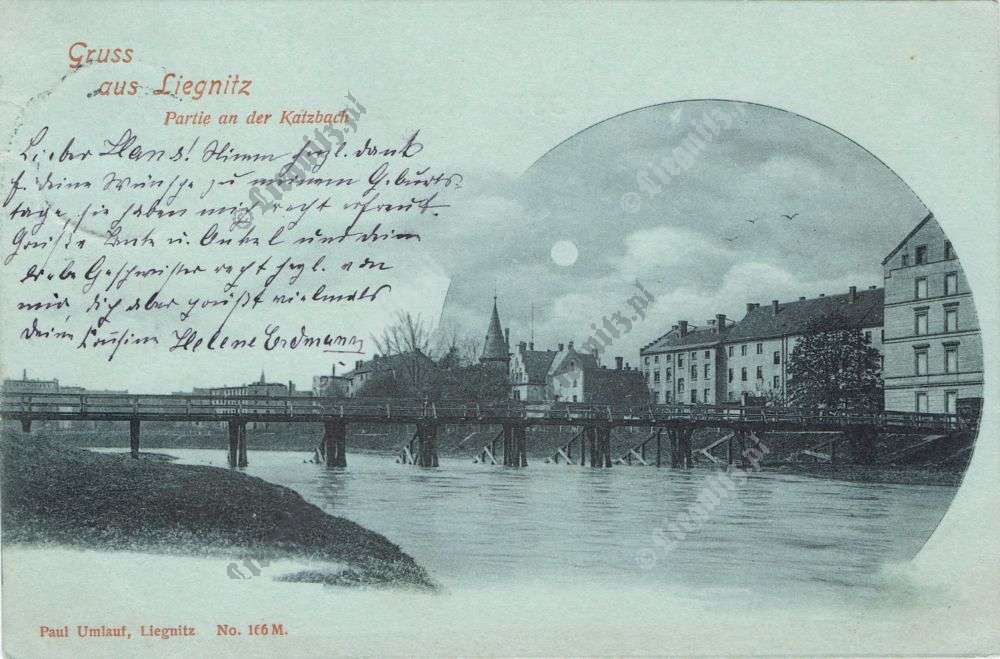 Gruss
aus Liegnitz
Partie an der Katzbach
Lieber Hans! Nimm hzl. dank
f. deine Wünsche zu meinem Geburts-
tage, sie haben mich recht erfreut.
Grüße Tante u. Onkel und deine
liebe Geschwister recht hzl. von
mir, dich aber grüßt vielmals
deine Cousine Helene Erdmann
Paul Umlauf, Liegnitz No. 166 M.
© Liegnitz.pl
© Liegnitz.pl
© Liegnitz.pl
© Liegnitz.pl
© Liegnitz.pl